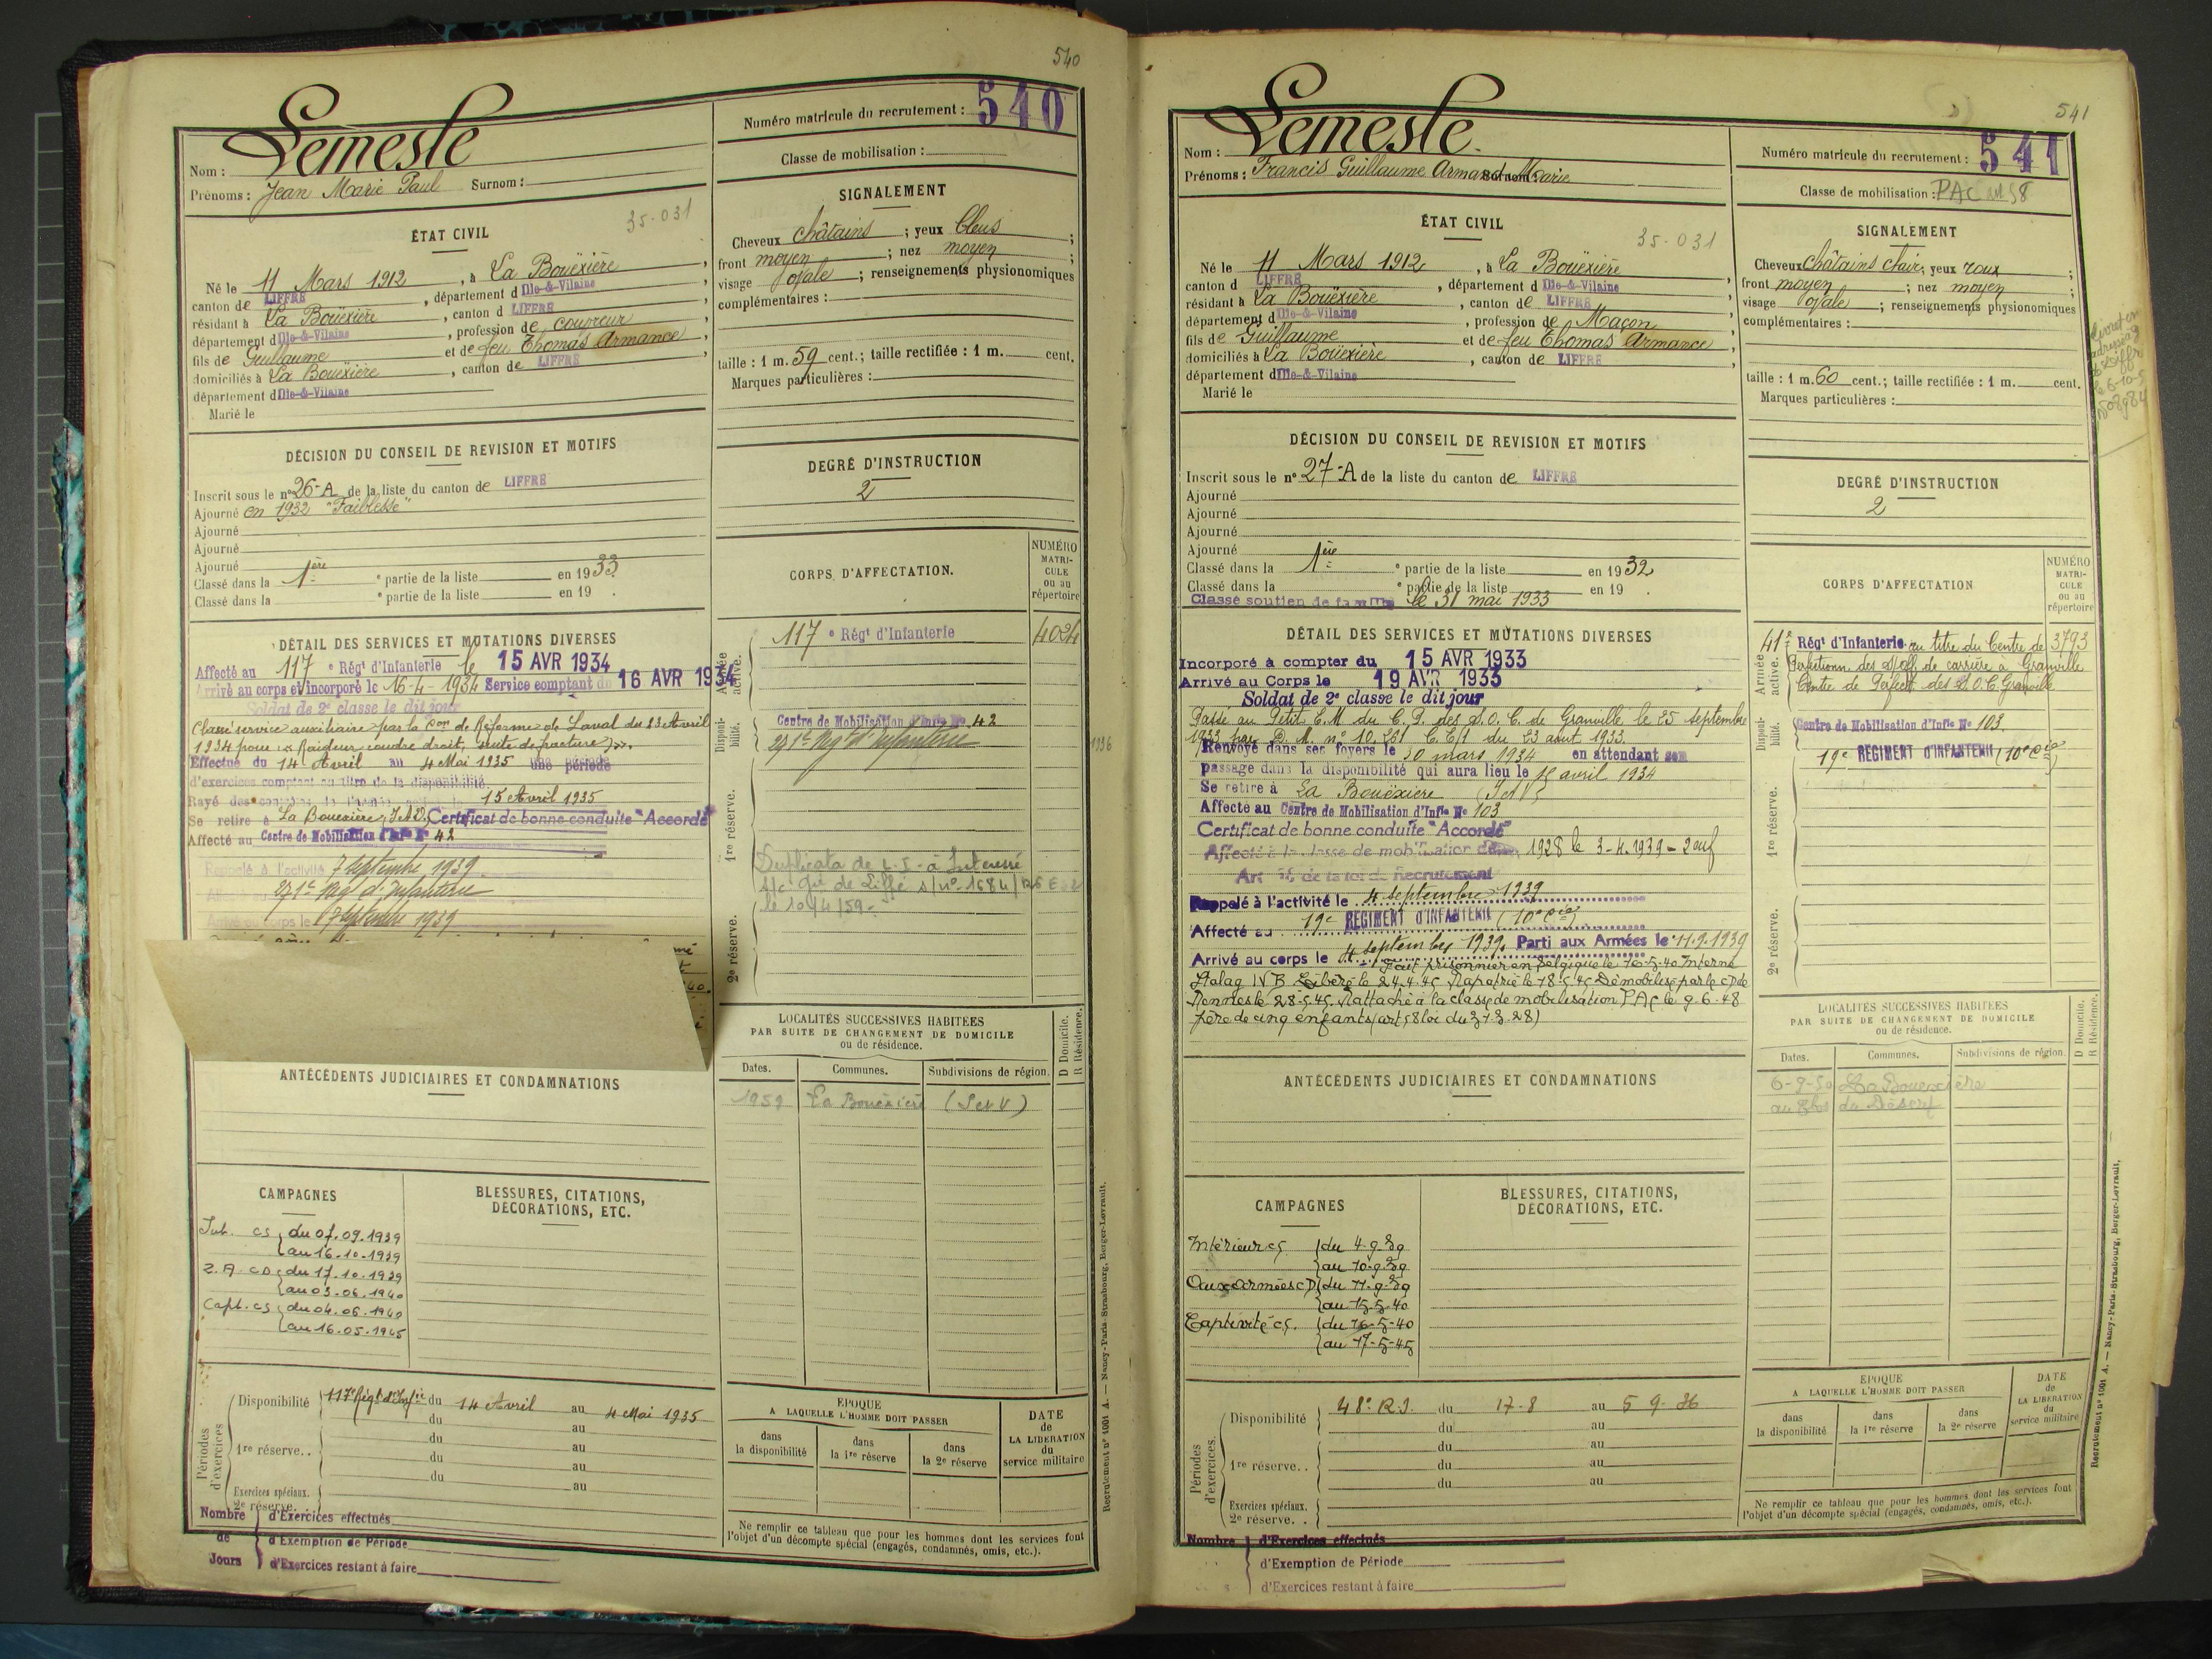 540
Nom : Lemesle
Prénoms : Jean Marie Paul Surnom :
Numéro matricule du recrutement : 540
Classe de mobilisation :
ÉTAT CIVIL
35-031
Né le 11 Mars 1912, à La Bouëxière,
canton de LIFFRÉ, département d Ille-&-Vilaine,
résidant à La Bouëxière, canton d LIFFRÉ,
département d Ille-&-Vilaine, profession de couvreur,
fils de Guillaume et de feu Thomas Armance,
domiciliés à La Bouëxière, canton de LIFFRÉ,
département d Ille-&-Vilaine
Marié le
SIGNALEMENT
Cheveux châtains ; yeux bleus ;
front moyen ; nez moyen ;
visage ovale ; renseignements physionomiques
complémentaires :
taille : 1 m. 59 cent.; taille rectifiée : 1 m. cent.
Marques particulières :
DÉCISION DU CONSEIL DE REVISION ET MOTIFS
Inscrit sous le n° 26-A de la liste du canton de LIFFRÉ
Ajourné en 1932 "Faiblesse"
Ajourné
Ajourné
Ajourné
Classé dans la 1ère e partie de la liste en 1933
Classé dans la e partie de la liste en 19 .
DEGRÉ D'INSTRUCTION
2
DÉTAIL DES SERVICES ET MUTATIONS DIVERSES
Affecté au 117 e Régt d'Infanterie le 15 AVR 1934
Arrivé au corps et incorporé le 16-4-1934 Service comptant du 16 AVR 1934
Soldat de 2e classe le dit jour
Classé service auxiliaire par la Con de Réforme de Laval du 23 Avril
1934 pour "Raideur coudre droit, suite de fracture".
Effectué du 14 Avril au 4 Mai 1935 une période
d'exercices comptant au titre de la disponibilité.
Rayé des contrôles de l'armée active le 15 Avril 1935
Se retire à La Bouëxière, I.&V. Certificat de bonne conduite "Accordé"
Affecté au Centre de Mobilisation d'Infie N° 42
Rappelé à l'activité 7 Septembre 1939
Affecté au 271e Rég d'Infanterie
Arrivé au corps le 7 Septembre 1939
CORPS D'AFFECTATION.
NUMÉRO MATRICULE ou au répertoire
Armée active.
117 e Régt d'Infanterie 4024
Disponibilité.
Centre de Mobilisation d'Infie No 42
271e Régt d'Infanterie
1936
1re réserve.
Duplicata de L.I. à Intéressé
s/c Gie de Liffré s/no 1684/
le 10/4/59-
2e réserve.
LOCALITÉS SUCCESSIVES HABITÉES
PAR SUITE DE CHANGEMENT DE DOMICILE
ou de résidence.
D Domicile. R Résidence.
Dates. Communes. Subdivisions de région.
1959 La Bouëxière (I et V)
ANTÉCÉDENTS JUDICIAIRES ET CONDAMNATIONS
CAMPAGNES
Int. CS du 07.09.1939
au 16.10.1939
Z.A. CD du 17.10.1939
au 03.06.1940
Capt. CS du 04.06.1940
au 16.05.1945
BLESSURES, CITATIONS, DÉCORATIONS, ETC.
Périodes d'exercices
Disponibilité 117e Régt d'Infie du 14 Avril au 4 Mai 1935
du au
1re réserve.. du au
du au
du au
Exercices spéciaux.
2e réserve.
Nombre de Jours
d'Exercices effectués
d'Exemption de Période
d'Exercices restant à faire
ÉPOQUE
A LAQUELLE L'HOMME DOIT PASSER
dans la disponibilité dans la 1re réserve dans la 2e réserve
DATE de LA LIBÉRATION du service militaire
Ne remplir ce tableau que pour les hommes dont les services font
l'objet d'un décompte spécial (engagés, condamnés, omis, etc.).
Recrutement n° 1001 A. — Nancy-Paris-Strasbourg, Berger-Levrault.
541
Nom : Lemesle.
Prénoms : Francis Guillaume Armand Marie Surnom :
Numéro matricule du recrutement : 541
Classe de mobilisation : PAC art 58
ÉTAT CIVIL
35-031
Né le 11 Mars 1912, à La Bouëxière,
canton d LIFFRÉ, département d Ille-&-Vilaine,
résidant à La Bouëxière, canton de LIFFRÉ,
département d Ille-&-Vilaine, profession de Maçon,
fils de Guillaume et de feu Thomas Armance,
domiciliés à La Bouëxière, canton de LIFFRÉ,
département d Ille-&-Vilaine
Marié le
SIGNALEMENT
Cheveux châtains clair; yeux roux ;
front moyen ; nez moyen ;
visage ovale ; renseignements physionomiques
complémentaires :
taille : 1 m. 60 cent.; taille rectifiée : 1 m. cent.
Marques particulières :
DÉCISION DU CONSEIL DE REVISION ET MOTIFS
Inscrit sous le n° 27-A de la liste du canton de LIFFRÉ
Ajourné
Ajourné
Ajourné
Ajourné
Classé dans la 1ère e partie de la liste en 1932
Classé dans la e partie de la liste en 19 .
Classé soutien de famille le 31 mai 1933
DEGRÉ D'INSTRUCTION
2
DÉTAIL DES SERVICES ET MUTATIONS DIVERSES
Incorporé à compter du 15 AVR 1933
Arrivé au Corps le 19 AVR 1933
Soldat de 2e classe le dit jour
Passé au Petit E.M du C.P. des S.O.C. de Granville le 25 septembre
1933 par D.M. n° 10.261 C.E/1 du 23 août 1933.
Renvoyé dans ses foyers le 30 mars 1934 en attendant son
passage dans la disponibilité qui aura lieu le 15 avril 1934
Se retire à La Bouëxière (I et V)
Affecté au Centre de Mobilisation d'Infie N° 103
Certificat de bonne conduite "Accordé"
Affecté à la classe de mobilisation de 1928 le 3-4.1939 - 2 enf
Art 58 de la loi de Recrutement
Rappelé à l'activité le 4 septembre 1939
Affecté au 19e RÉGIMENT D'INFANTERIE (10e Cie)
Arrivé au corps le 4 septembre 1939. Parti aux Armées le 11.9.1939
Fait prisonnier en Belgique le 16-5-40 Interné
Stalag IV B Libéré le 24.4.45 Rapatrié le 18.5.45 Démobilisé par le CD de
Rennes le 28.5.45. Rattaché à la classe de mobilisation PAC le 9.6.48
père de cinq enfants (art 58 loi du 31.3.28)
CORPS D'AFFECTATION
NUMÉRO MATRICULE ou au répertoire
Armée active.
41e Régt d'Infanterie au titre du Centre de 3793
Perfectionn des S/off de carrière à Granville
Centre de Perfect. des S.O.C. Granville
Disponibilité.
Centre de Mobilisation d'Infie N° 103
19e RÉGIMENT D'INFANTERIE (10e Cie)
1re réserve.
2e réserve.
LOCALITÉS SUCCESSIVES HABITÉES
PAR SUITE DE CHANGEMENT DE DOMICILE
ou de résidence.
D Domicile. R Résidence.
Dates. Communes. Subdivisions de région.
6-9-50 La Bouexière
au Clos du Désert
ANTÉCÉDENTS JUDICIAIRES ET CONDAMNATIONS
CAMPAGNES
Intérieur CS du 4-9-39
au 10-9-39
Aux Armées CD du 11-9-39
au 15-5-40
Captivité CS. du 16-5-40
au 17-5-45
BLESSURES, CITATIONS, DÉCORATIONS, ETC.
Périodes d'exercices.
Disponibilité 48e R.I. du 17-8 au 5 9-36
du au
1re réserve.. du au
du au
du au
Exercices spéciaux.
2e réserve. .
Nombre
d'Exercices effectués
d'Exemption de Période
d'Exercices restant à faire
ÉPOQUE
A LAQUELLE L'HOMME DOIT PASSER
dans la disponibilité dans la 1re réserve dans la 2e réserve
DATE de LA LIBÉRATION du service militaire
Ne remplir ce tableau que pour les hommes dont les services font
l'objet d'un décompte spécial (engagés, condamnés, omis, etc.).
Recrutement n° 1001 A. — Nancy-Paris-Strasbourg, Berger-Levrault.